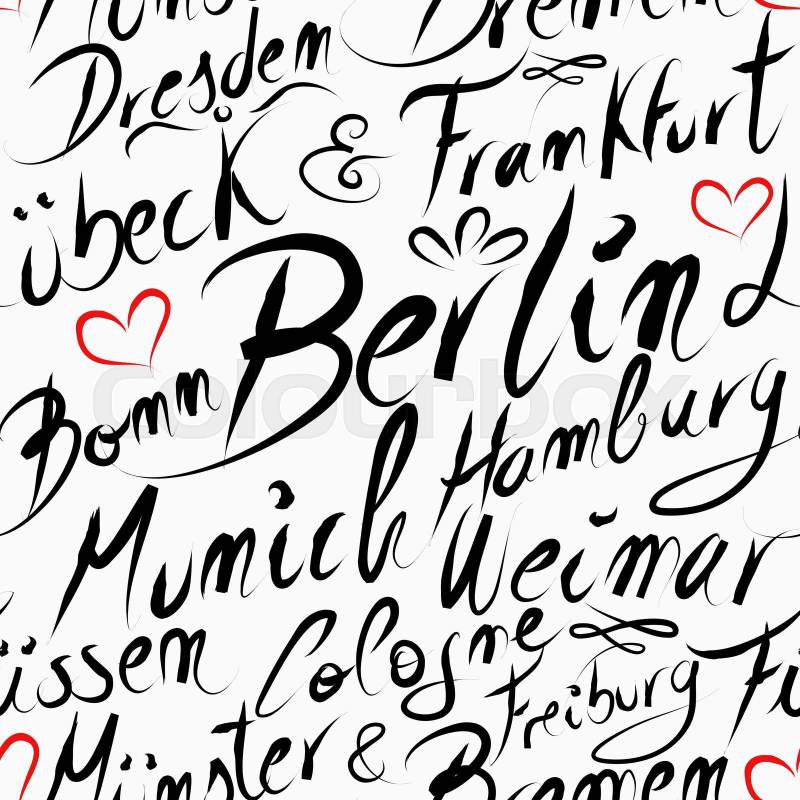 Dresden
Frankfurt
übeck &
Berlin
L
Bonn
Hamburg
Munich
Weimar
üssen
Cologne
Freiburg
Fü
Münster &
Bremen
colourbox